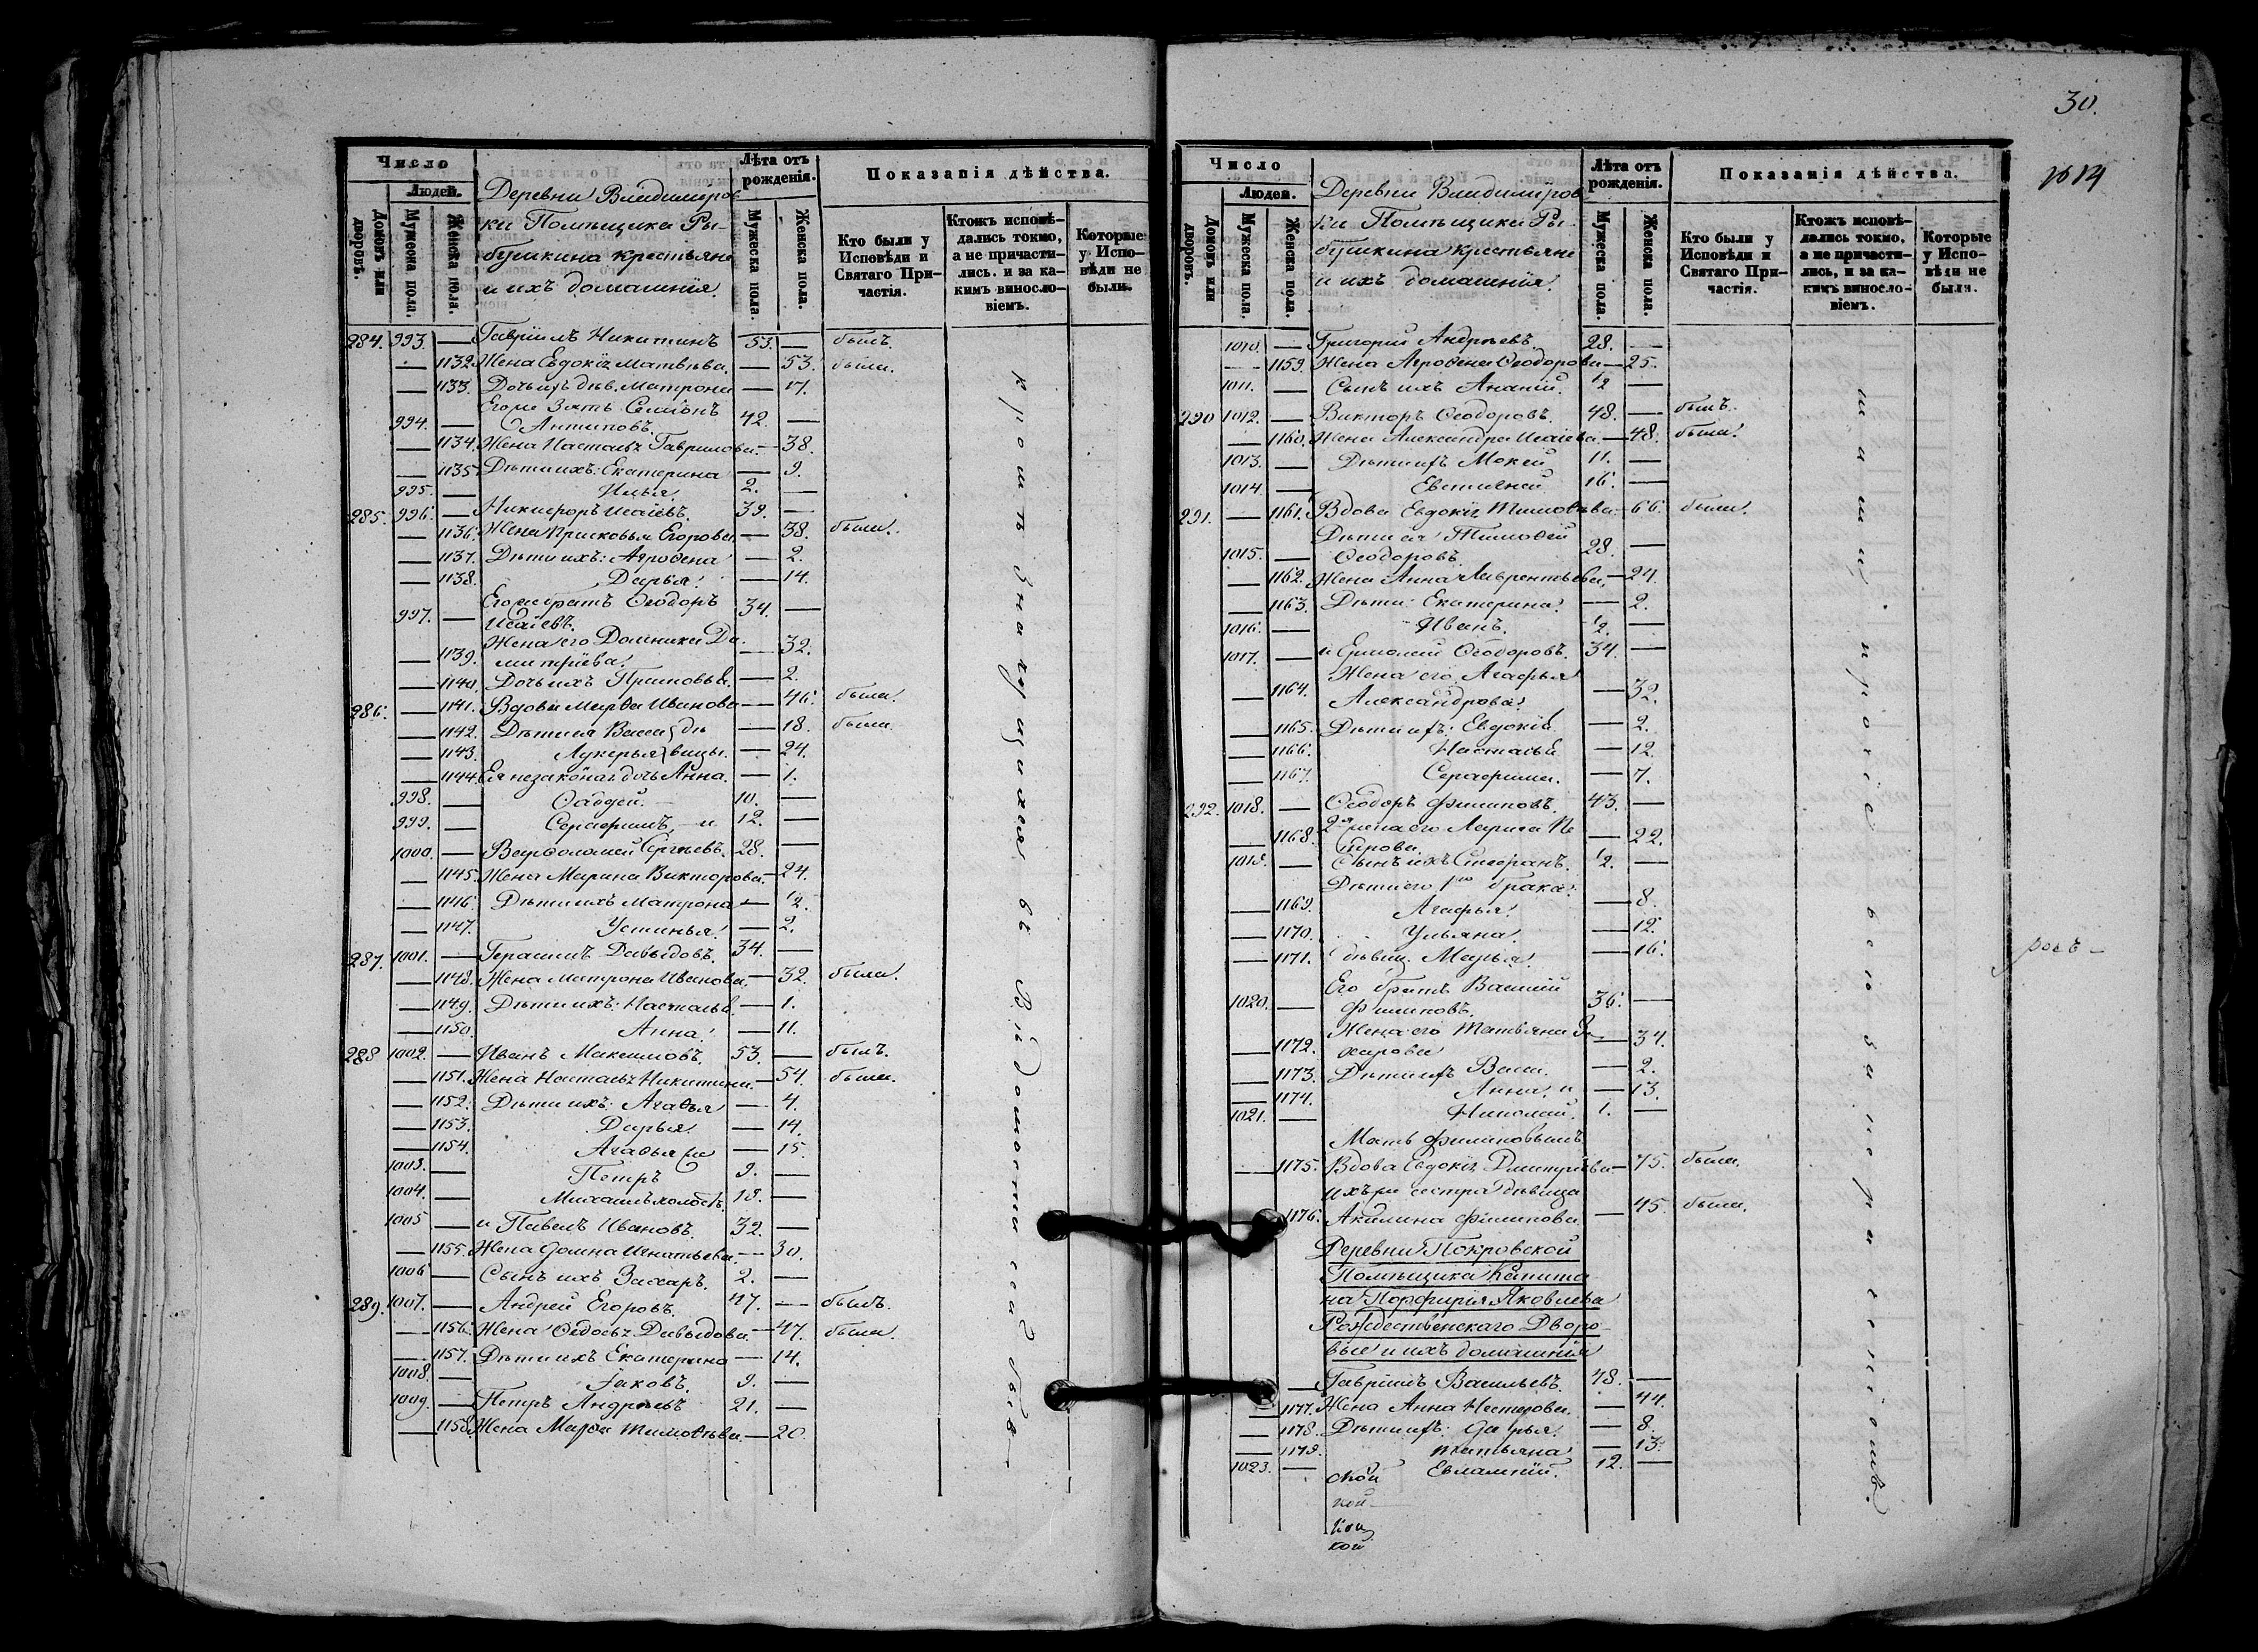 Число
Людей.
Домовъ или дворовъ.
Мужеска пола.
Женска пола.
Деревни Владимiров
ки Помѣщика Ры-
бушкина крестьяне
и ихъ домашнiя.
Лѣта отъ рожденiя.
Мужеска пола.
Женска пола.
Показанiя дѣйства.
Кто были у Исповѣди и Святаго При-частiя.
Ктожъ исповѣ-дались токмо, а не причасти-лись. и за ка-кимъ виносло-вiемъ.
Которые у Испо-вѣди не были.
284. 993. — Гаврiилъ Никитинъ 53. — былъ.
— 1132. Жена Евдокiя Матвѣева. — 53. была.
— 1133. Дочь ихъ дѣв. Матрона — 17.
Егоже Зять Семiонъ
994. — Антиповъ. 42. —
— 1134. Жена Настасья Гаврилова. — 38.
— 1135. Дѣти ихъ: Екатерина — 9.
995. — Илья. 2. —
285. 996. — Никифоръ Исаiевъ. 39. —
— 1136. Жена Прасковья Егорова — 38. была.
— 1137. Дѣти ихъ: Агрофена — 2.
— 1138. Дарья. — 14.
Егоже братъ Ѳеодоръ
997. — Исаiевъ. 34. —
Жена его Домника Да-
— 1139. митрiева. — 32.
— 1140. Дочь ихъ — 2.
286. — 1141. Вдова Марѳа Иванова — 46. была.
— 1142. Дѣти ея Васса дѣ — 18. была.
— 1143. Лукерья вицы. — 24.
— 1144. Ея незакон. дочь Анна. — 1.
998. — Ѳаддей. 10. —
999. — Серафимъ, и 12. —
1000. — Варѳоломей Сергѣевъ. 28. —
— 1145. Жена Марина Викторова. — 24.
— 1146. Дѣти ихъ Матрона — 1/2.
— 1147. Устинья. — 2.
287. 1001. — Герасимъ Давыдовъ. 34. —
— 1148. Жена Матрона Иванова. — 32. была.
— 1149. Дѣти ихъ: Настасья. — 1.
— 1150. Анна. — 11.
288. 1002. — Иванъ Максимовъ. 53. — былъ.
— 1151. Жена Настасья Никитина. — 54. была.
— 1152. Дѣти ихъ: Агаѳья — 4.
— 1153. Дарья. — 14.
— 1154. Агаѳья — 15.
1003. — Петръ 9. —
1004. — Михаилъ холостъ. 18. —
1005 — и Павелъ Ивановъ. 32. —
— 1155. Жена Домна Игнатьева. — 30.
1006 — Сынъ ихъ Захаръ. 2. —
289. 1007. — Андрей Егоровъ. 47. — былъ.
— 1156. Жена Ѳедосья Давыдова. — 47. была.
— 1157. Дѣти ихъ Екатерина — 14.
1008. — Iаковъ. 9. —
1009. — Петръ Андреевъ 21. —
— 1158. Жена Марѳа Тимоѳѣева. — 20.
кромѣ значущихся въ Вѣдомости
30.
1614
Число
Людей.
Домовъ или дворовъ.
Мужеска пола.
Женска пола.
Деревни Владимiров
ки Помѣщика Ры-
бушкина крестьяне
и ихъ домашнiя.
Лѣта отъ рожденiя.
Мужеска пола.
Женска пола.
Показанiя дѣйства.
Кто были у Исповѣди и Святаго При-частiя.
Ктожъ исповѣ-дались токмо, а не причасти-лись, и за ка-кимъ винославiемъ.
Которые у Испо-вѣди не были.
1010. — Григорiй Андреевъ. 28. —
— 1159. Жена Агрофена Ѳеодорова — 25.
1011. — Сынъ ихъ Ананiй. 1/2 —
290 1012. — Викторъ Ѳеодоровъ. 48. — былъ.
— 1160. Жена Александра Исаiева. — 48. была.
1013. — Дѣти ихъ Мокей 11. —
1014. — Евстигней 16. —
291. — 1161. Вдова Евдокiя Тимоѳѣева — 66. была.
Дѣти ея Тимоѳей
1015. — Ѳеодоровъ. 28. —
— 1162. Жена Анна Лаврентьева. — 24.
— 1163. Дѣти: Екатерина. — 2.
1016. — Иванъ. 1/2. —
1017. — и Ермолай Ѳеодоровъ. 34. —
Жена его Агафья
— 1164. Александрова. — 32.
— 1165. Дѣти ихъ: Евдокiя — 2.
— 1166. Настасья — 12.
— 1167. Серафима. — 7.
292. 1018. — Ѳеодоръ Филиповъ. 43. —
2я жена его Лариса Пе
— 1168. трова. — 22.
1019. — Сынъ ихъ Стефанъ. 1/2. —
Дѣти его 1го брака:
— 1169. Агафья. — 8.
— 1170. Ульяна. — 12.
— 1171. дѣвиц. Марья. — 16.
Его братъ Василiй
1020. — Филиповъ. 36. —
Жена его Татьяна За-
— 1172. харова — 34.
— 1173. Дѣти ихъ Васса. — 2.
— 1174. Анна, и — 13.
1021. — Николай. 1. —
Мать Филиповымъ
— 1175. Вдова Евдокiя Дмитрiева — 75. была.
ихъже сестра дѣвица
1176. Акилина Филипова. — 45. была.
Деревни Покровской
Помѣщика Капита
на Порфирiя Яковлева
Рождественскаго Дворо-
вые и ихъ домашнiя
— Гаврiилъ Васильевъ. 48. —
— 1177. Жена Анна Нестерова. — 44.
— 1178. Дѣти ихъ: Дарья. — 8.
— 1179. Татьяна — 13.
1023. — Евлампiй. 12. —
ской
кой
кой
прочiе
росъ —